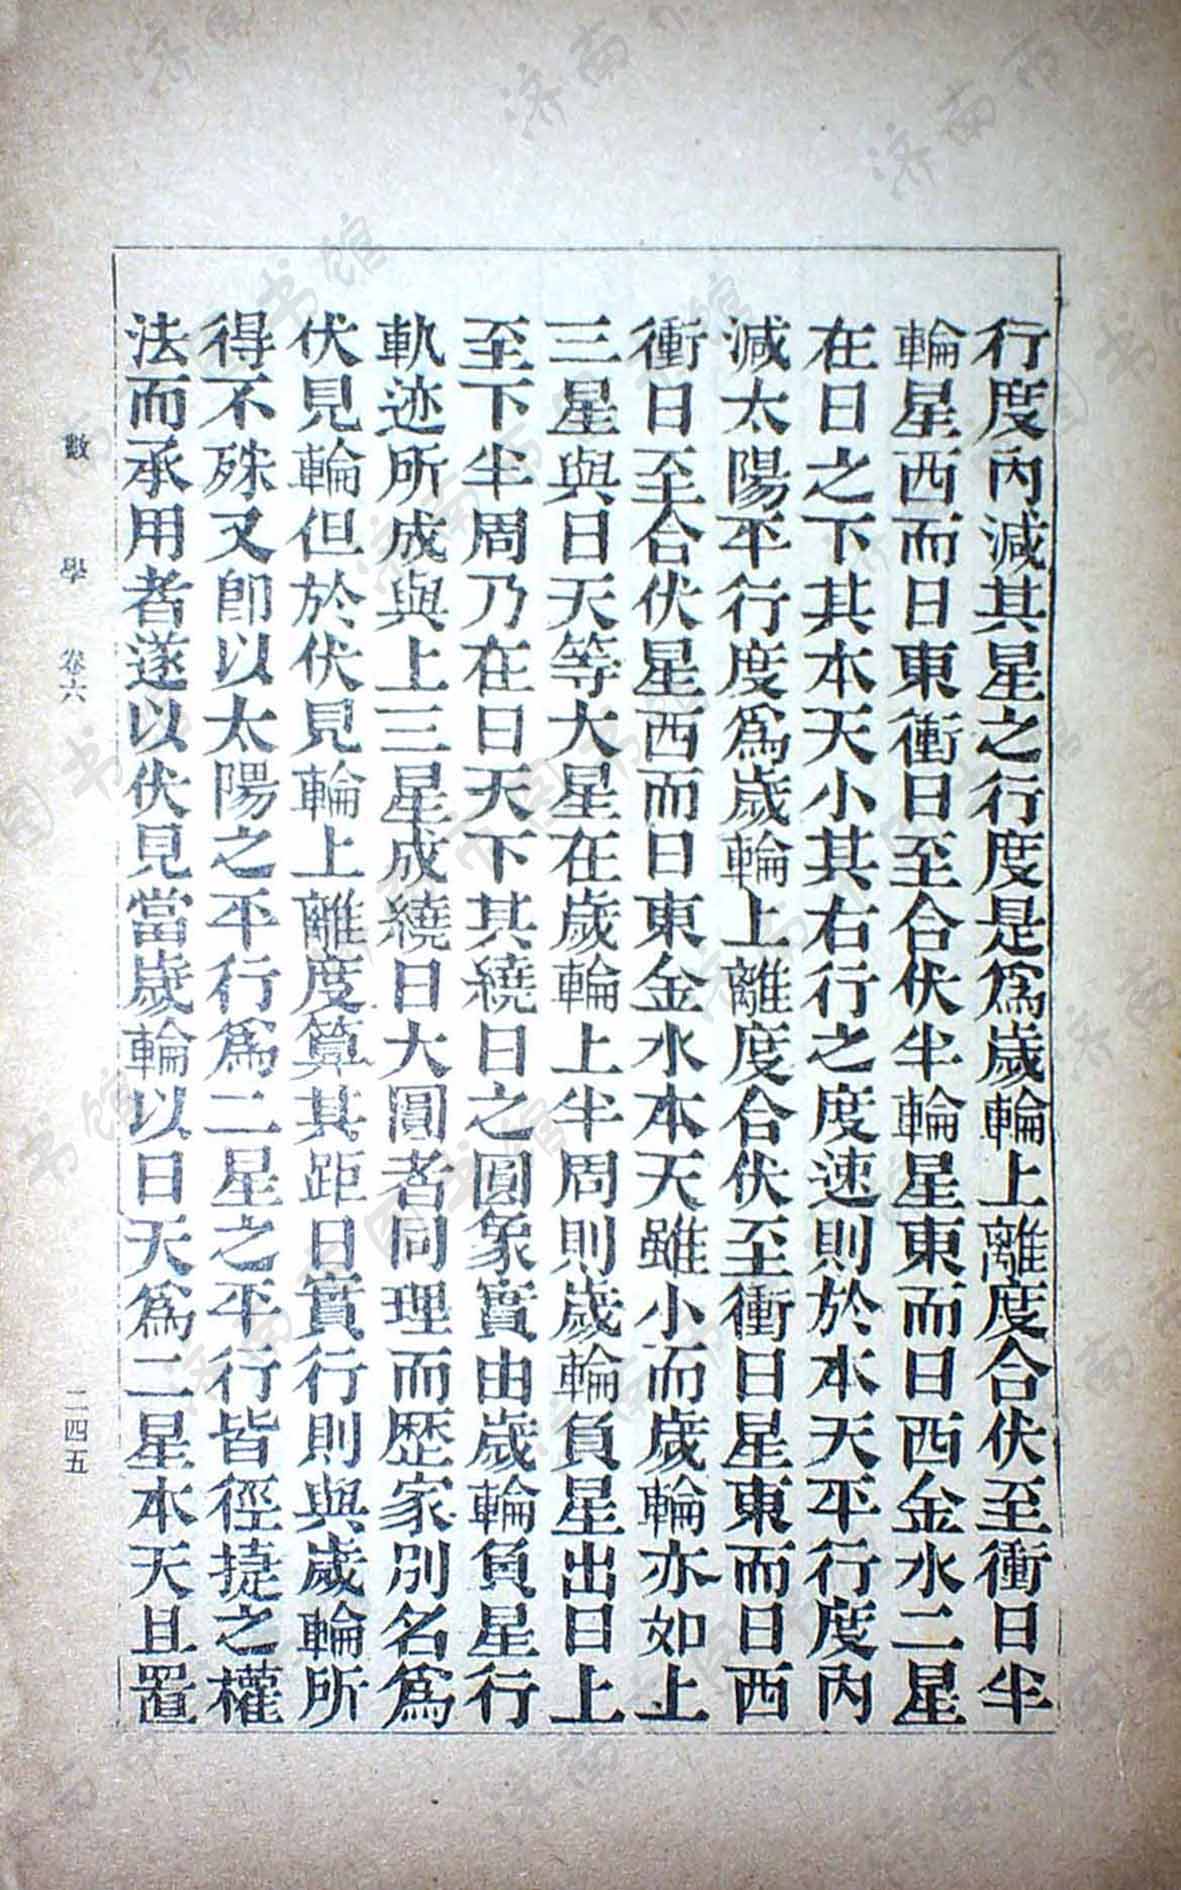 行度內減其星之行度是爲歲輪上離度合伏至衝日半
輪星西而日東衝日至合伏半輪星東而日西金水二星
在日之下其本天小其右行之度速則於本天平行度內
減太陽平行度爲歲輪上離度合伏至衝日星東而日西
衝日至合伏星西而日東金水本天雖小而歲輪亦如上
三星與日天等大星在歲輪上半周則歲輪負星出日上
至下半周乃在日天下其繞日之圓象實由歲輪負星行
軌迹所成與上三星成繞日大圓者同理而歷家別名爲
伏見輪但於伏見輪上離度算其距日實行則與歲輪所
得不殊又卽以太陽之平行爲二星之平行皆徑捷之權
法而承用者遂以伏見當歲輪以日天爲二星本天且置
數學 卷六 二四五
济南市图书馆